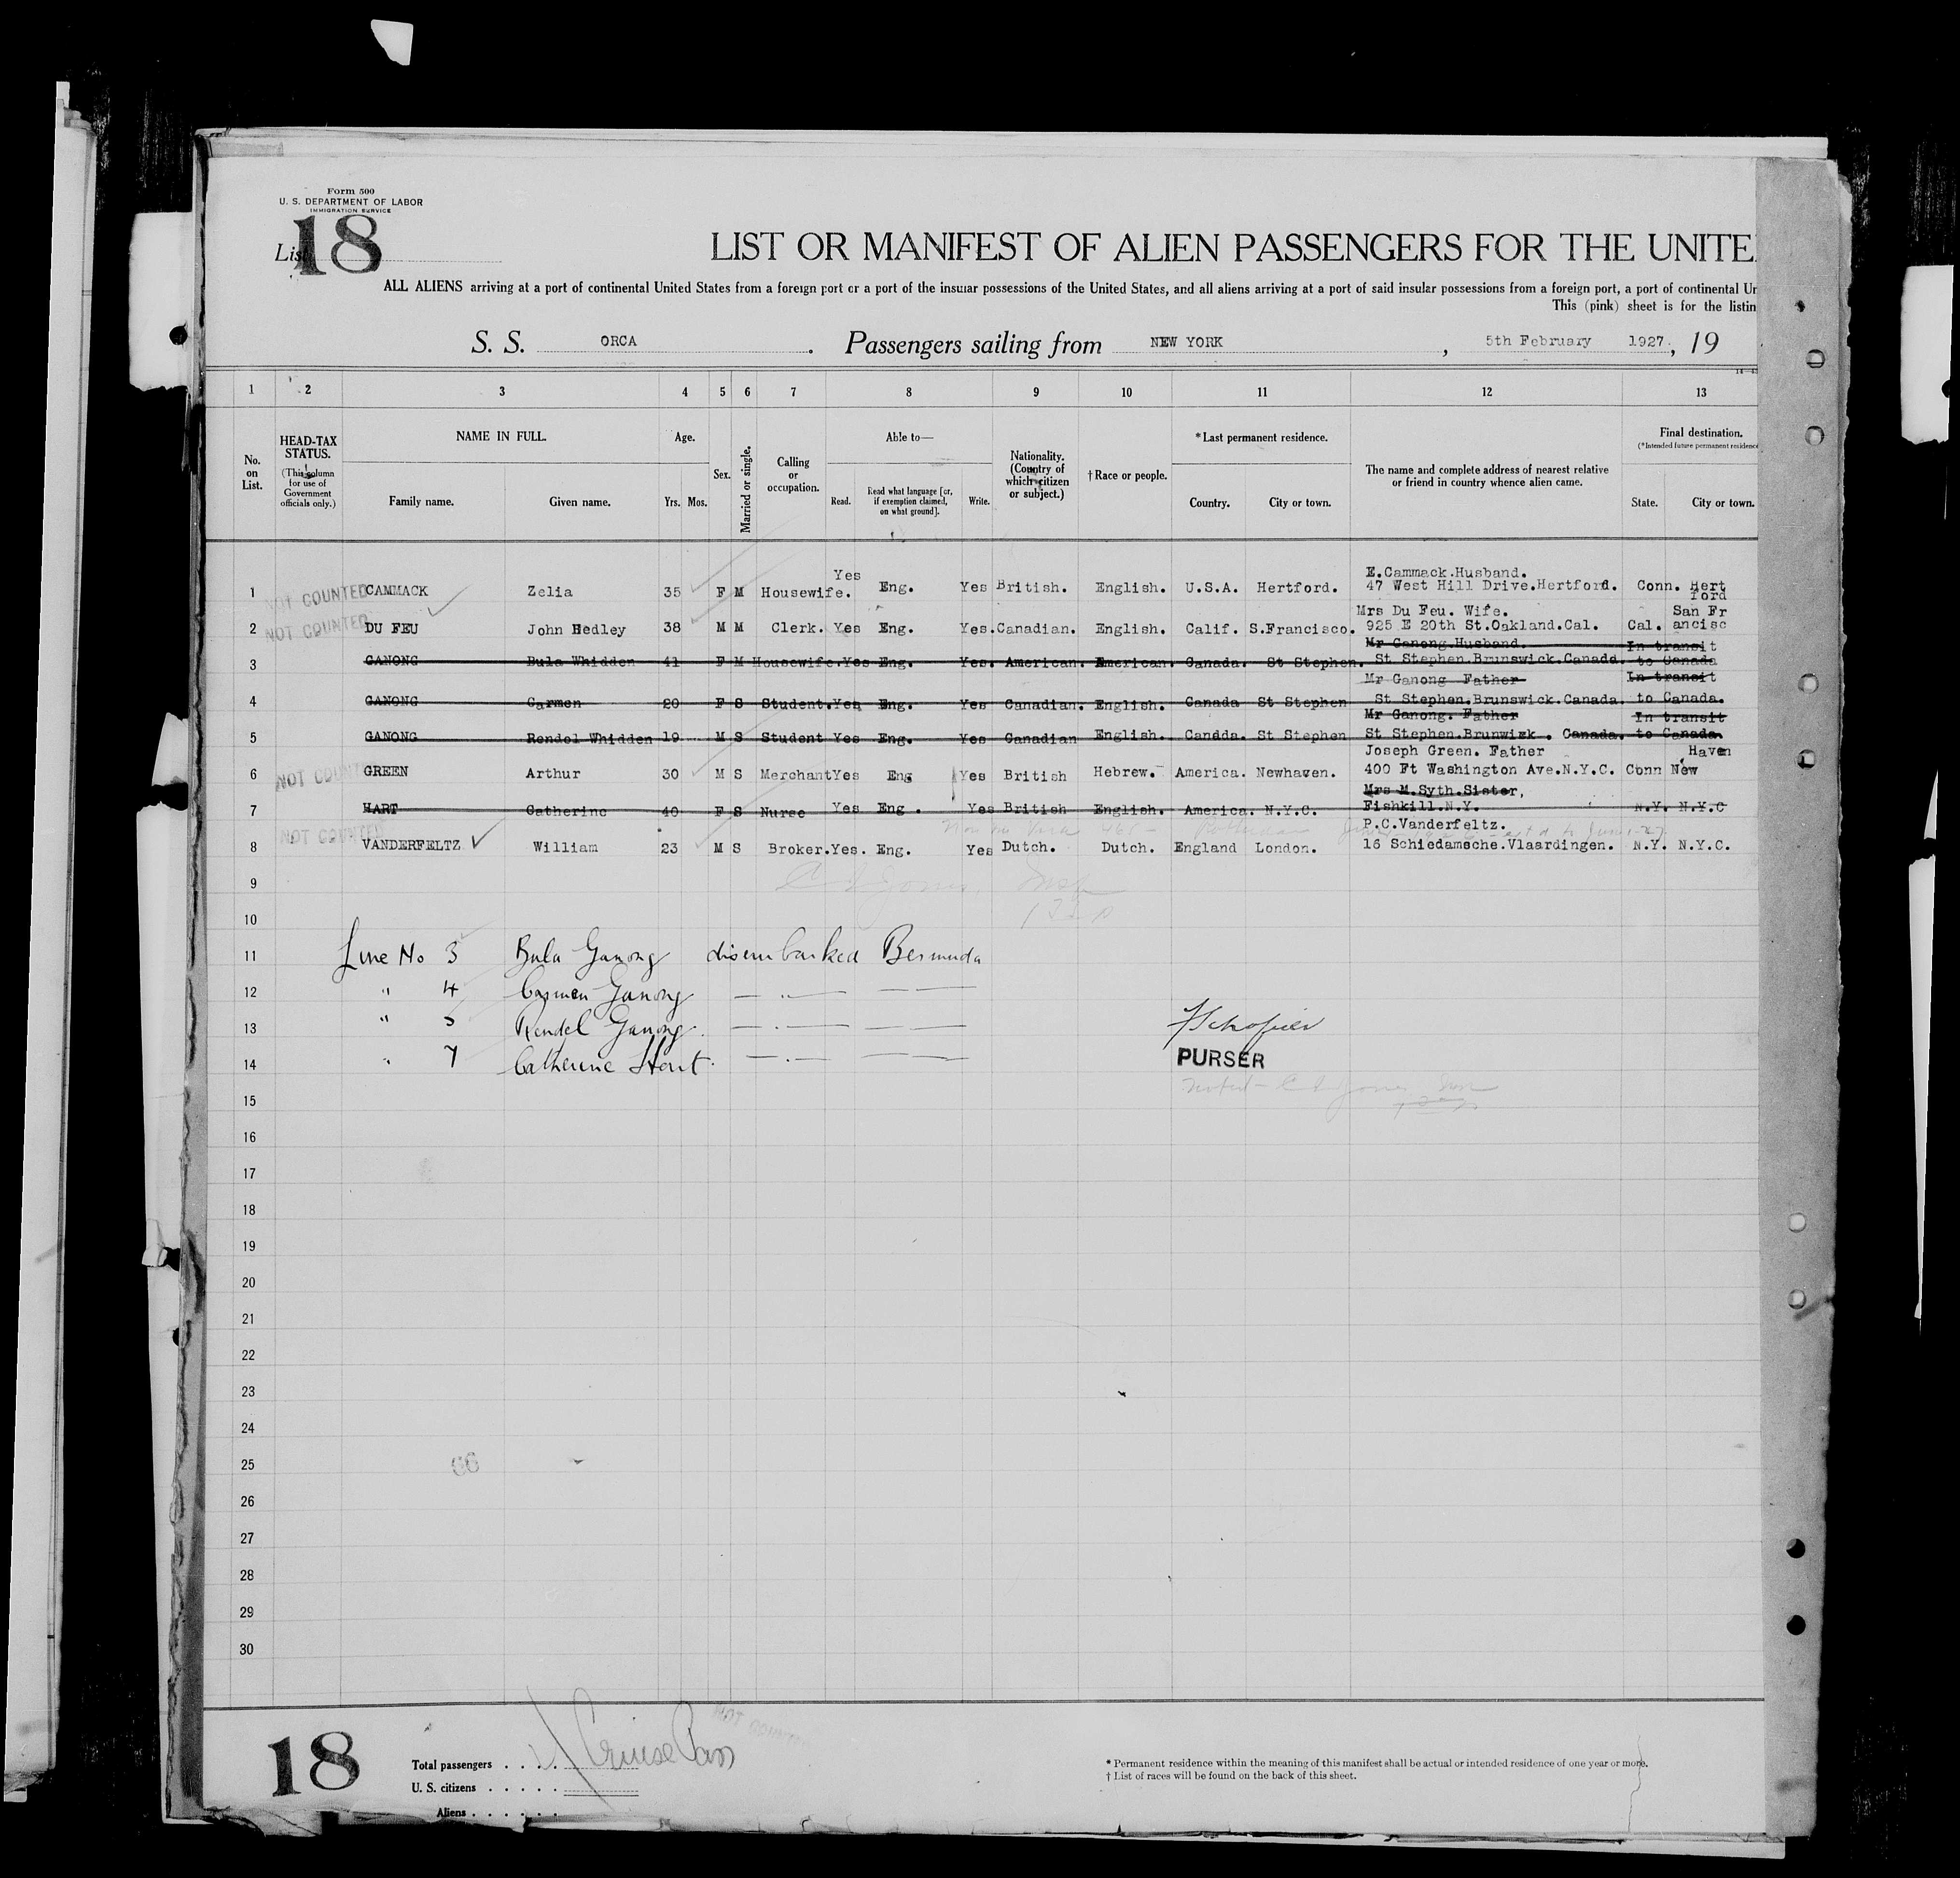 Form 500
U. S. DEPARTMENT OF LABOR
IMMIGRATION SERVICE
List 18
LIST OR MANIFEST OF ALIEN PASSENGERS FOR THE UNITE
ALL ALIENS arriving at a port of continental United States from a foreign port or a port of the insular possessions of the United States, and all aliens arriving at a port of said insular possessions from a foreign port, a port of continental Un
This (pink) sheet is for the listin
S. S. ORCA . Passengers sailing from NEW YORK , 5th February 1927. , 19
1 2 3 4 5 6 7 8 9 10 11 12 13
No. on List.
HEAD-TAX STATUS.
(This column for use of Government officials only.)
NAME IN FULL.
Family name. Given name.
Age.
Yrs. Mos.
Sex.
Married or single.
Calling or occupation.
Able to—
Read. Read what language [or, if exemption claimed, on what ground]. Write.
Nationality. (Country of which citizen or subject.)
† Race or people.
* Last permanent residence.
Country. City or town.
The name and complete address of nearest relative or friend in country whence alien came.
Final destination.
(*Intended future permanent residence
State. City or town.
1 NOT COUNTED CAMMACK Zelia 35 F M Housewife. Yes Eng. Yes British. English. U.S.A. Hertford. E.Cammack.Husband. 47 West Hill Drive.Hertford. Conn. Hert ford
2 NOT COUNTED DU FEU John Hedley 38 M M Clerk. Yes Eng. Yes. Canadian. English. Calif. S.Francisco. Mrs Du Feu. Wife. 925 E 20th St.Oakland.Cal. Cal. San Fr ancisc
3 GANONG Bula Whidden 41 F M Housewife. Yes Eng. Yes. American. American. Canada. St Stephen. Mr Ganong.Husband. St Stephen.Brunswick.Canada. In transit to Canada
4 GANONG Carmen 20 F S Student. Yes Eng. Yes Canadian. English. Canada St Stephen Mr Ganong Father St Stephen.Brunswick.Canada. In transit to Canada.
5 GANONG Rendol Whidden 19 M S Student Yes Eng. Yes Canadian English. Canada. St Stephen Mr Ganong. Father St Stephen.Brunwick. Canada. In transit to Canada.
6 NOT COUNTED GREEN Arthur 30 M S Merchant Yes Eng Yes British Hebrew. America. Newhaven. Joseph Green. Father 400 Ft Washington Ave.N.Y.C. Conn New Haven
7 HART Catherine 40 F S Nurse Yes Eng . Yes British English. America. N.Y.C. Mrs M.Syth.Sister, Fishkill.N.Y. N.Y. N.Y.C
8 NOT COUNTED VANDERFELTZ William 23 M S Broker. Yes. Eng. Yes Dutch. Dutch. England London. P.C.Vanderfeltz. 16 Schiedamsche.Vlaardingen. N.Y. N.Y.C.
9
10
11 Line No 3 Bula Ganong disembarked Bermuda
12 " 4 Carmen Ganong — " — — —
13 " 5 Rendel Ganong. — " — — —
14 " 7 Catherine Hart. — " — — —
PURSER
15
16
17
18
19
20
21
22
23
24
25
26
27
28
29
30
18
Total passengers . . . .
Cruise Pass
NOT COUNTED
U. S. citizens . . . . .
Aliens . . . . . .
* Permanent residence within the meaning of this manifest shall be actual or intended residence of one year or more.
† List of races will be found on the back of this sheet.